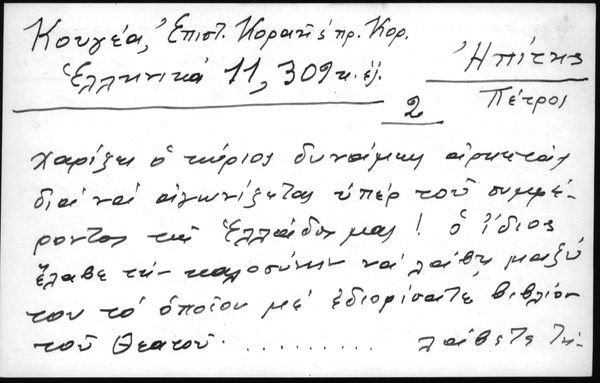 Κουγέα, Ἐπιστ. Κοραῆ ἐ πρ. Κορ.
Ἑλληνικά 11, 309 κ. ἑξ.
Ἠπίτης
Πέτρος
2
χαρίζει ὁ κύριος δυνάμεις ἀρκετάς
διά νά ἀγωνίζεται ὑπέρ τοῦ συμφέ-
ροντος τῆς Ἑλλάδος μας! ὁ ἴδιος
ἔλαβε τήν καλοσύνην νά λάβῃ μαζύ
του τό ὁποῖον μέ ἐδιορίσατε, βιβλίον
τοῦ Θεατοῦ .......... λάβετε τή-